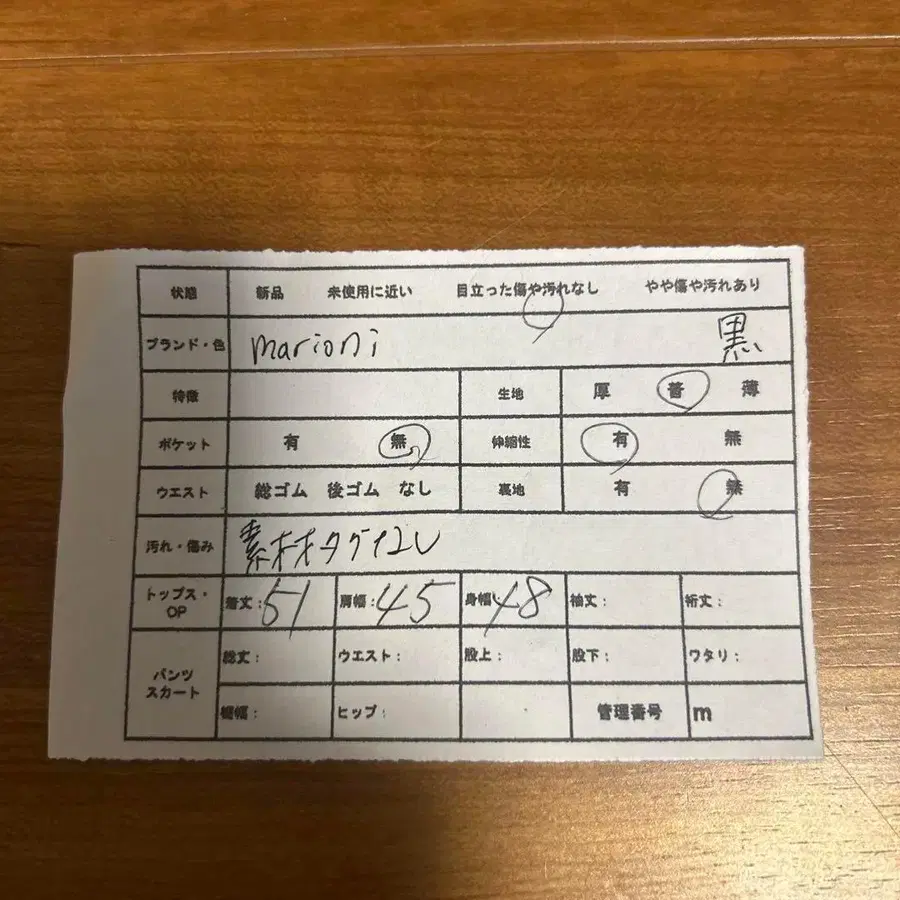 状態 新品 未使用に近い 目立った傷や汚れなし やや傷や汚れあり
ブランド・色 marioni 黒
特徴 生地 厚 普 薄
ポケット 有 無 伸縮性 有 無
ウエスト 総ゴム 後ゴム なし 裏地 有 無
汚れ・傷み 素材タグなし
トップス・OP 着丈: 51 肩幅: 45 身幅: 48 袖丈: 裄丈:
パンツ スカート 総丈: ウエスト: 股上: 股下: ワタリ:
裾幅: ヒップ: 管理番号 m